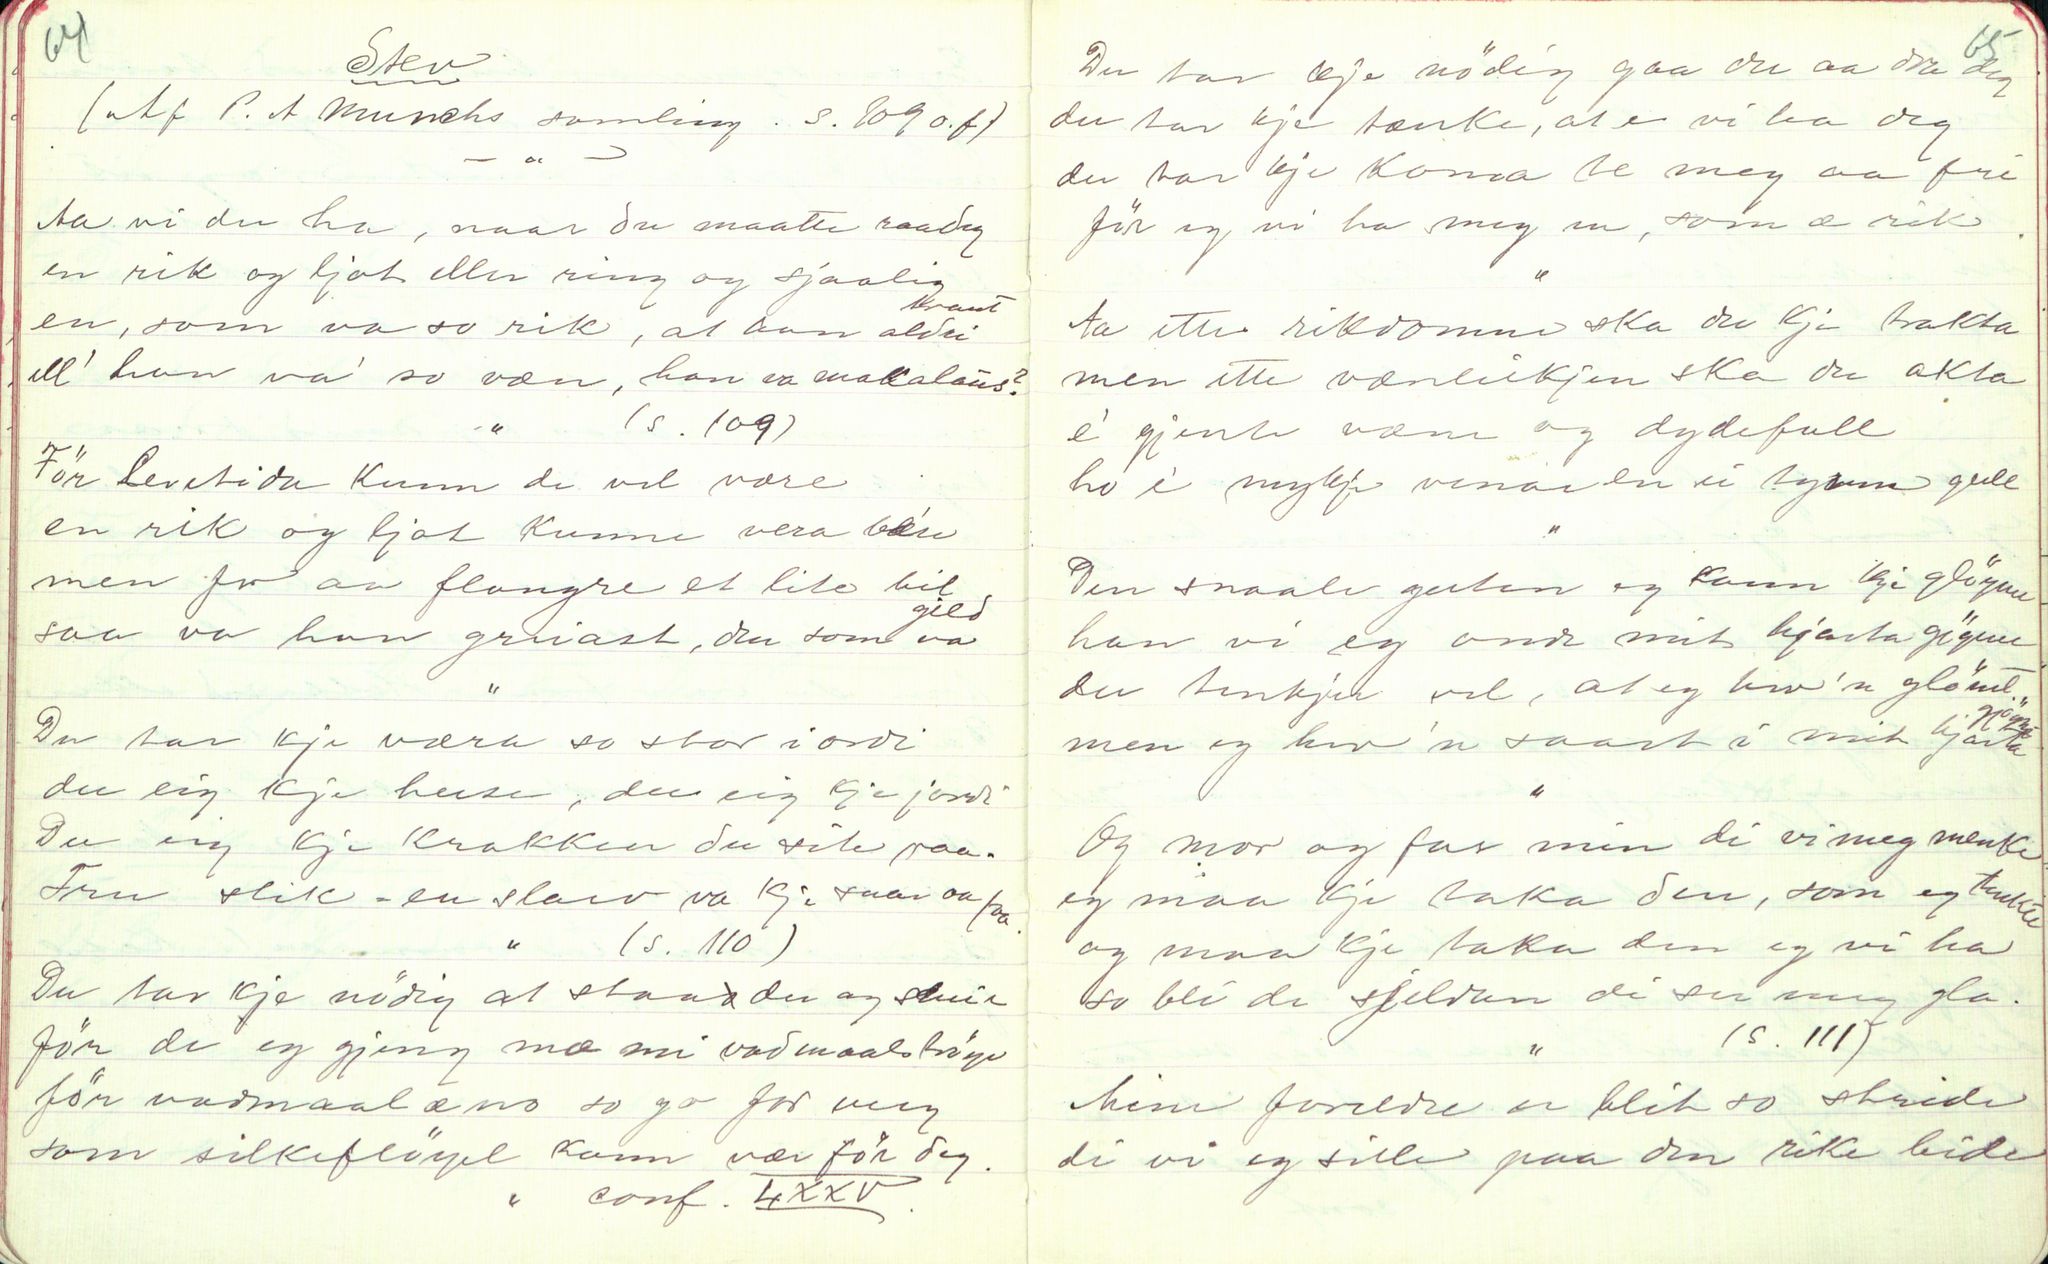 64
Stev
(Af P. A Munchs samling. s. 109 o.f)
— " —
Aa vi du ha, naar du maatte raadeg
en rik og ljot eller ring og sjaalig
en, som va so rik, at han aldri kraut
ell' han va' so væn, han va makalaus?
" (s. 109)
För Levetida kunn de vel være
en rik og ljot kunne vera bære
men for aa flangre et lite bil
saa va han griiast, den som gild va
"
Du tar kje væra so stor i ordi
du eig kje huse, du eig kje jordi
Du eig kje krakken du site paa.
Tru slik en slarv va kje snar aa faa.
" (s. 110)
Du tar kje nödig at staa der og
för de eg gjeng mæ mi vadmaalströye
för vadmaal æ no so go for meg
som silkeflöyel kann vær för deg.
" conf. LXXV.
65
Du tar kje nödig gaa der aa dra deg
du tar kje tænke, at e vi ha deg
du tar kje koma te meg aa fri
för eg vi ha meg en, som æ rik.
"
Aa ette rikdomme ska du kje trakta
men ette vænleikjen ska du akta
e' gjente væne og dydefull
ho e' mykje venar en ei tynne gull
"
Den snaale guten eg kann kje glöyme
han vi eg onde mit hjarta göyme
du tenkjer vel, at eg hev'n glömt
men eg hev'n saart i mit hjarta gjöymt
"
Og mor og far min di vi meg menke
eg maa kje taka den, som eg tenkte
og maa kje taka den eg vi ha
so bli de sjeldan di ser meg gla.
" (s. 111)
Mine foreldre er blit so stride
di vi eg sille paa den rike bide